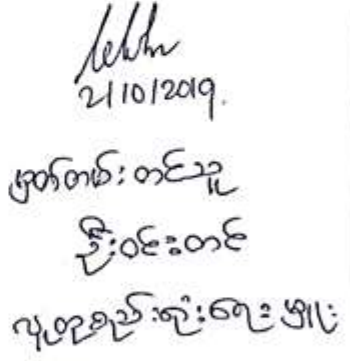 21/10/2019.
မှတ်တမ်းတင်သူ
ဦးဝင်းတင်
လူထုစည်းရုံးရေးမှူး